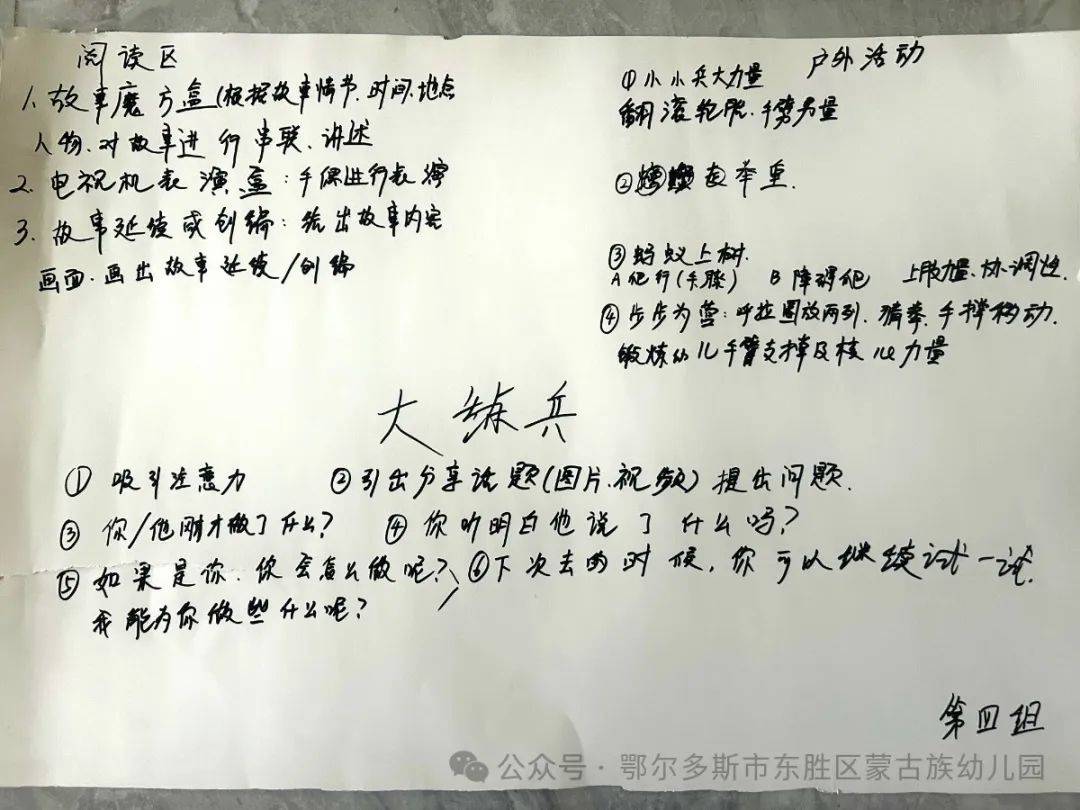 阅读区
1、故事魔方盒(根据故事情节、时间、地点
人物、对故事进行串联、讲述
2、电视机表演盒：手偶进行表演
3、故事延续或创编：给出故事内容
画面、画出故事延续/创编
户外活动
①小小兵大力量
翻滚轮胎、手臂力量
②举重、
③蚂蚁上树、
A爬行(手膝) B障碍爬 上肢力量、协调性、
④步步为营：呼拉圈放两列、猜拳、手撑移动、
锻炼幼儿手臂支撑及核心力量
大练兵
①吸引注意力 ②引出分享话题(图片、视频)提出问题、
③你/他刚才做了什么? ④你听明白他说了什么吗?
⑤如果是你、你会怎么做呢? ⑥下次去的时候，你可以继续试一试、
我能为你做些什么呢?
第四组
公众号·鄂尔多斯市东胜区蒙古族幼儿园